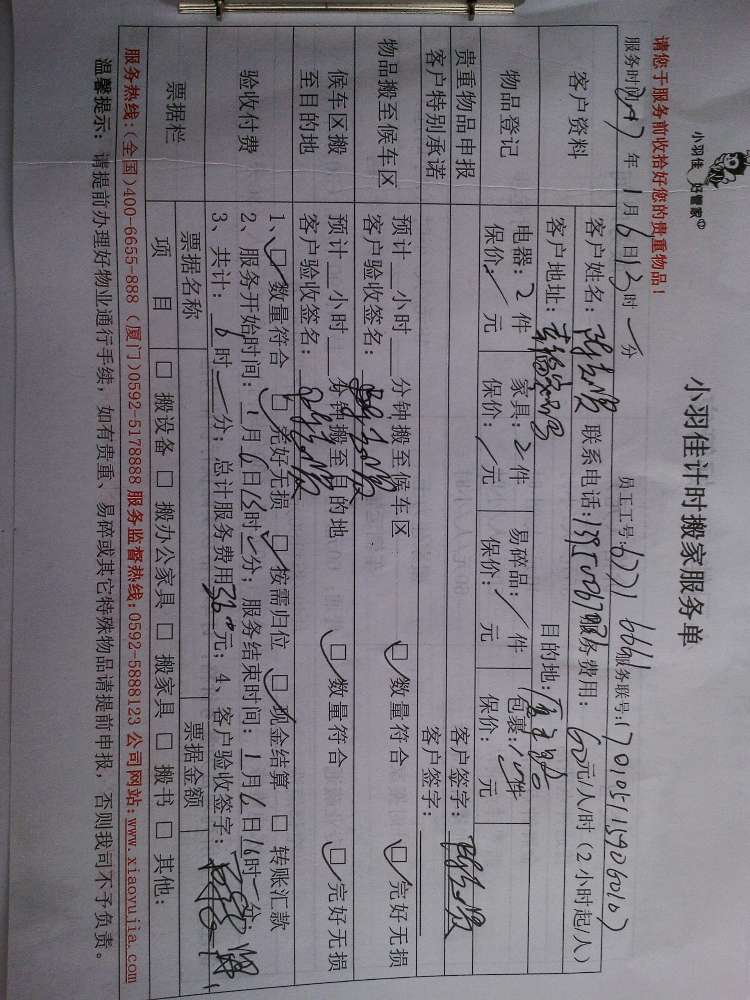 小羽佳 好管家
小羽佳计时搬家服务单
请您于服务前收拾好您的贵重物品！
服务时间: 年 1月6日 时 一分 员工工号: 6771 6661 服务联号:
客户资料 客户姓名: 联系电话: 服务费用: 60元/人/时(2小时起/人)
客户地址: 目的地:
物品登记 电器: 2件 家具: 2件 易碎品: /件 包裹: 件
保价: /元 保价: /元 保价: 元 保价: 元
贵重物品申报 客户签字:
客户特别承诺 客户签字:
物品搬至候车区 预计 小时 分钟搬至候车区 ☑数量符合 ☑完好无损
客户验收签名:
候车区搬至目的地 预计 小时 分钟搬至目的地 ☑数量符合 ☑完好无损
客户验收签名:
验收付费 1、☑数量符合 ☑完好无损 ☑按需归位 ☑现金结算 □转账汇款
2、服务开始时间: 1月6日 时 分; 服务结束时间: 1月6日16时一分;
3、共计: 6时一分; 总计服务费用 360元; 4、客户验收签字:
票据栏 票据名称 票据金额
项目 □搬设备 □搬办公家具 □搬家具 □搬书 □其他:
服务热线:(全国)400-6655-888 (厦门)0592-5178888 服务监督热线:0592-5888123 公司网站:www.xiaoyujia.com
温馨提示: 请提前办理好物业通行手续, 如有贵重、易碎或其它特殊物品请提前申报, 否则我司不予负责。